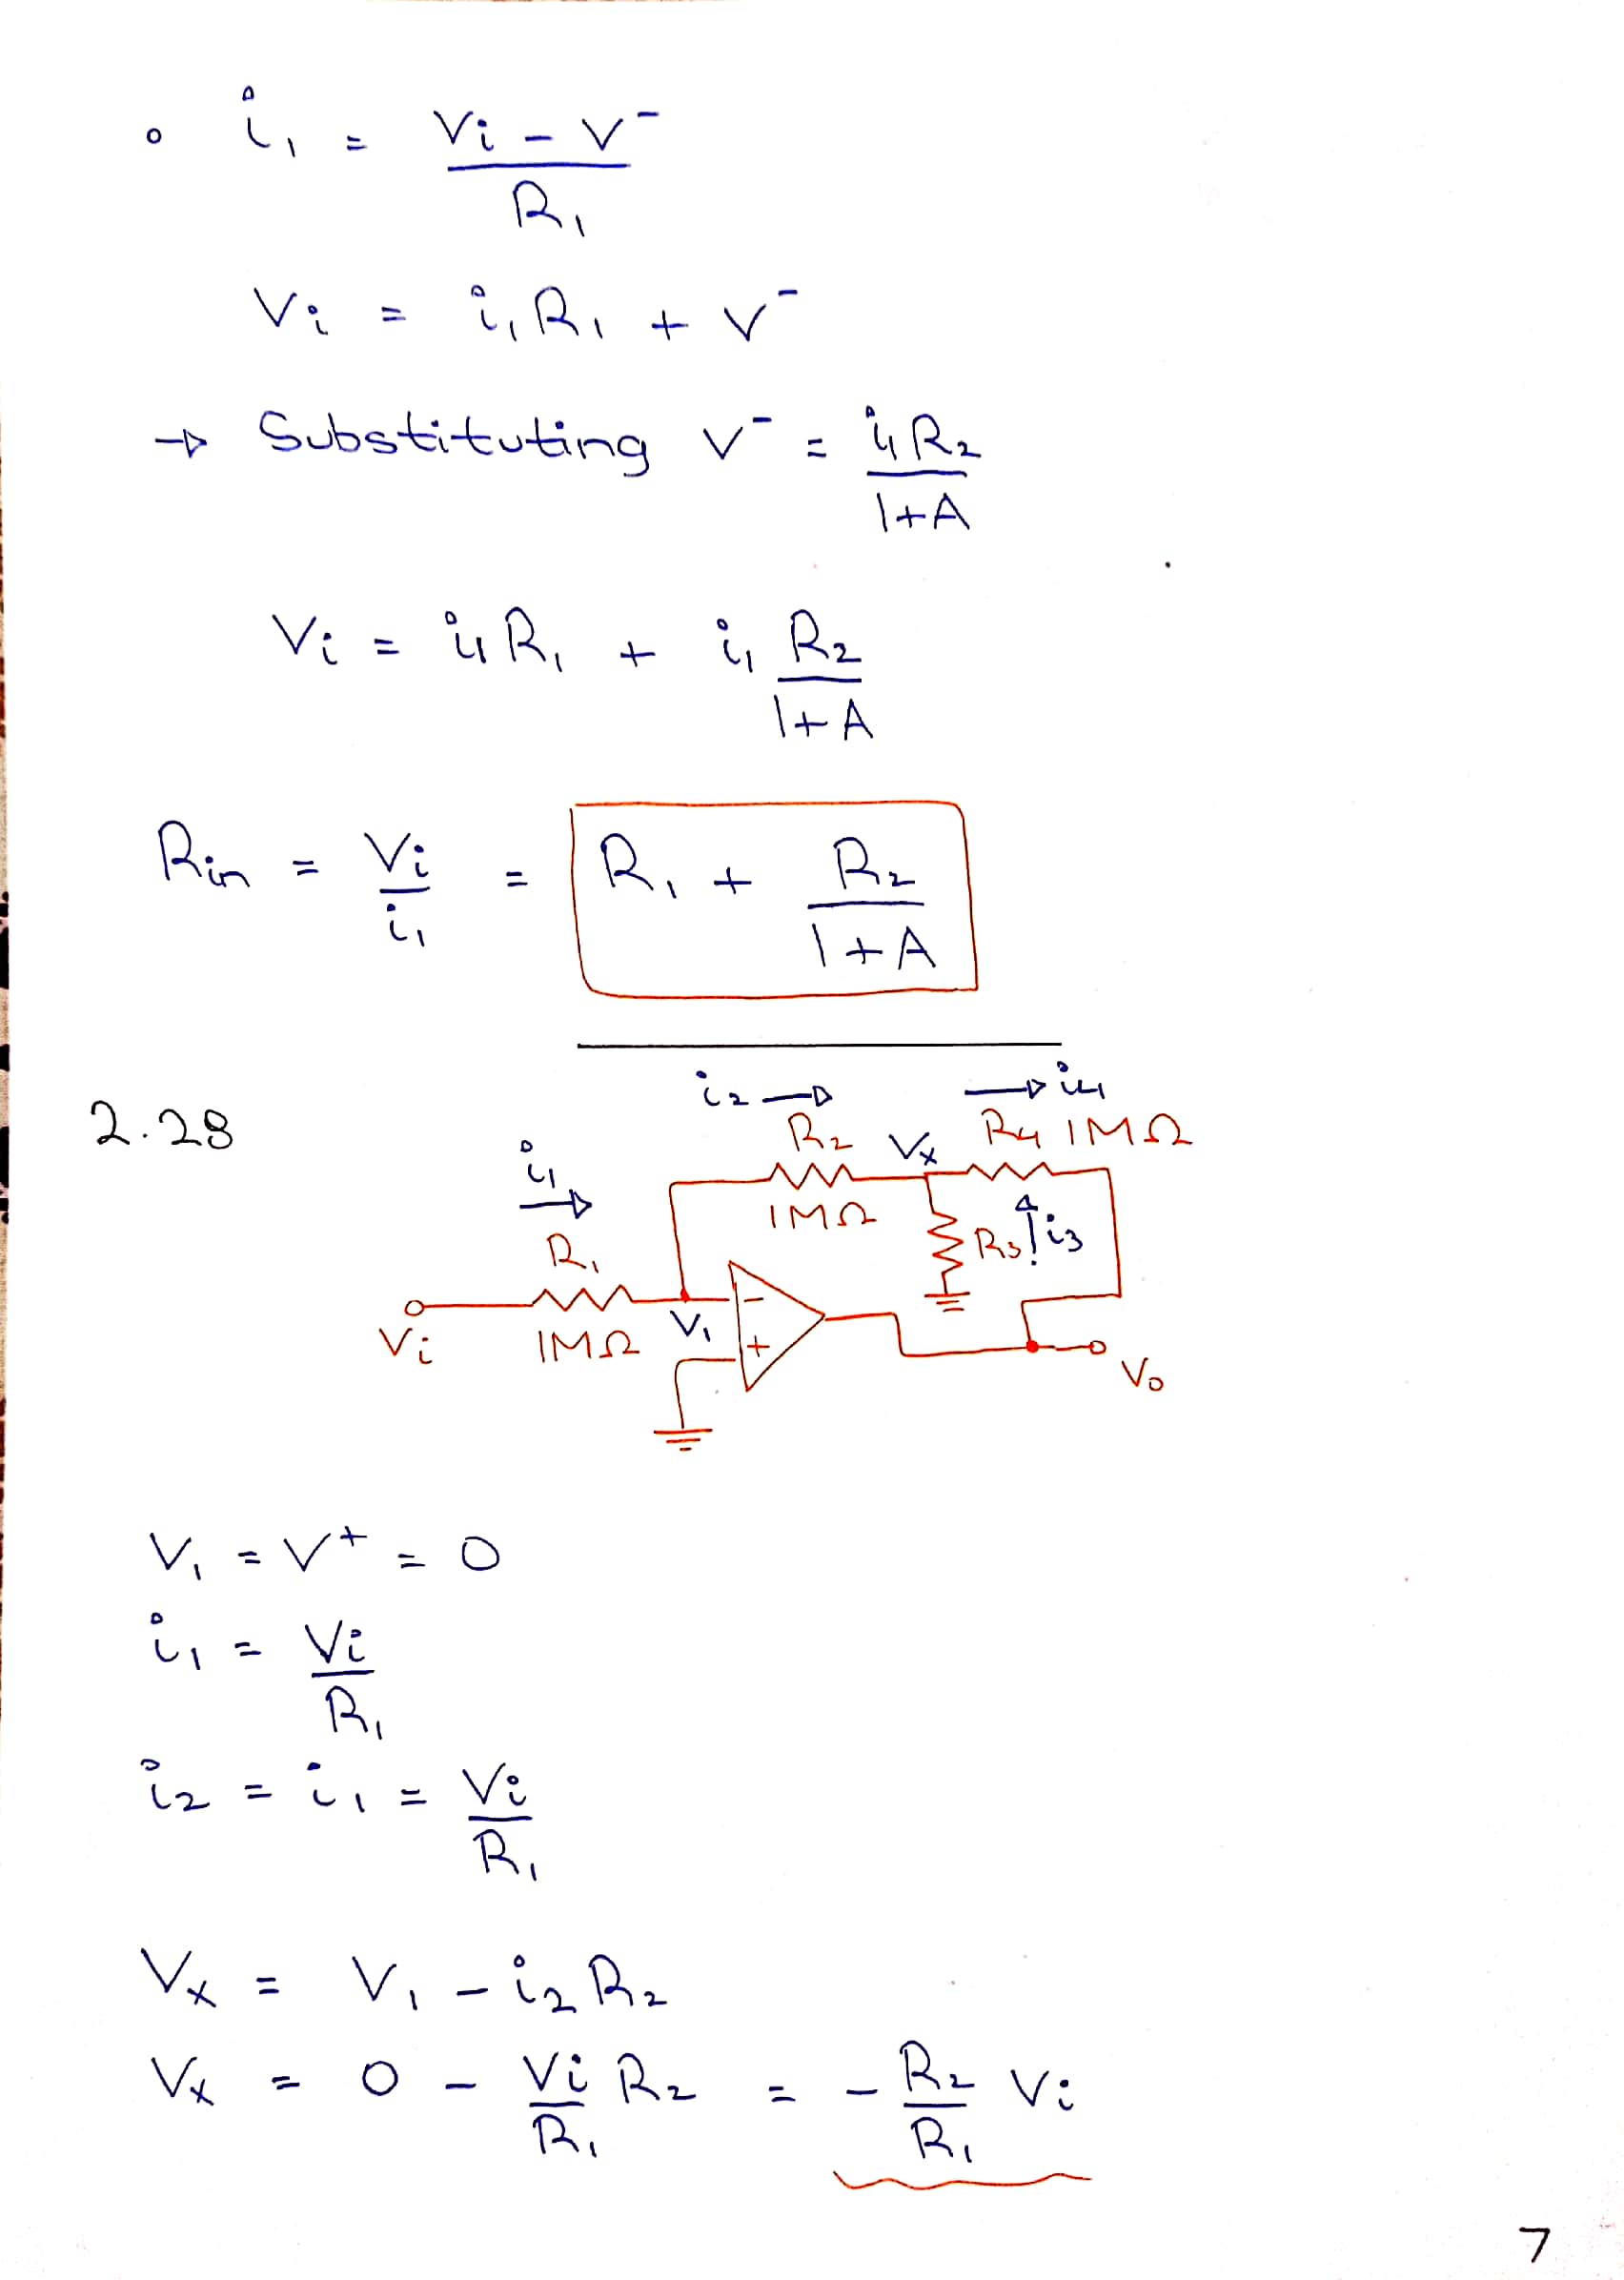 ∘ i₁ = (Vi − V⁻) / R₁
Vi = i₁R₁ + V⁻
→ Substituting V⁻ = i₁R₂ / (1+A)
Vi = i₁R₁ + i₁ R₂ / (1+A)
Rin = Vi / i₁ = R₁ + R₂ / (1+A)
2.28
i₂ →
→ i₄
R₂
Vx
R₄ 1MΩ
i₁
1MΩ
R₃ ↑ i₃
R₁
−
Vi
1MΩ
V₁
+
Vo
V₁ = V⁺ = 0
i₁ = Vi / R₁
i₂ = i₁ = Vi / R₁
Vx = V₁ − i₂R₂
Vx = 0 − Vi / R₁ R₂ = − R₂ / R₁ Vi
7